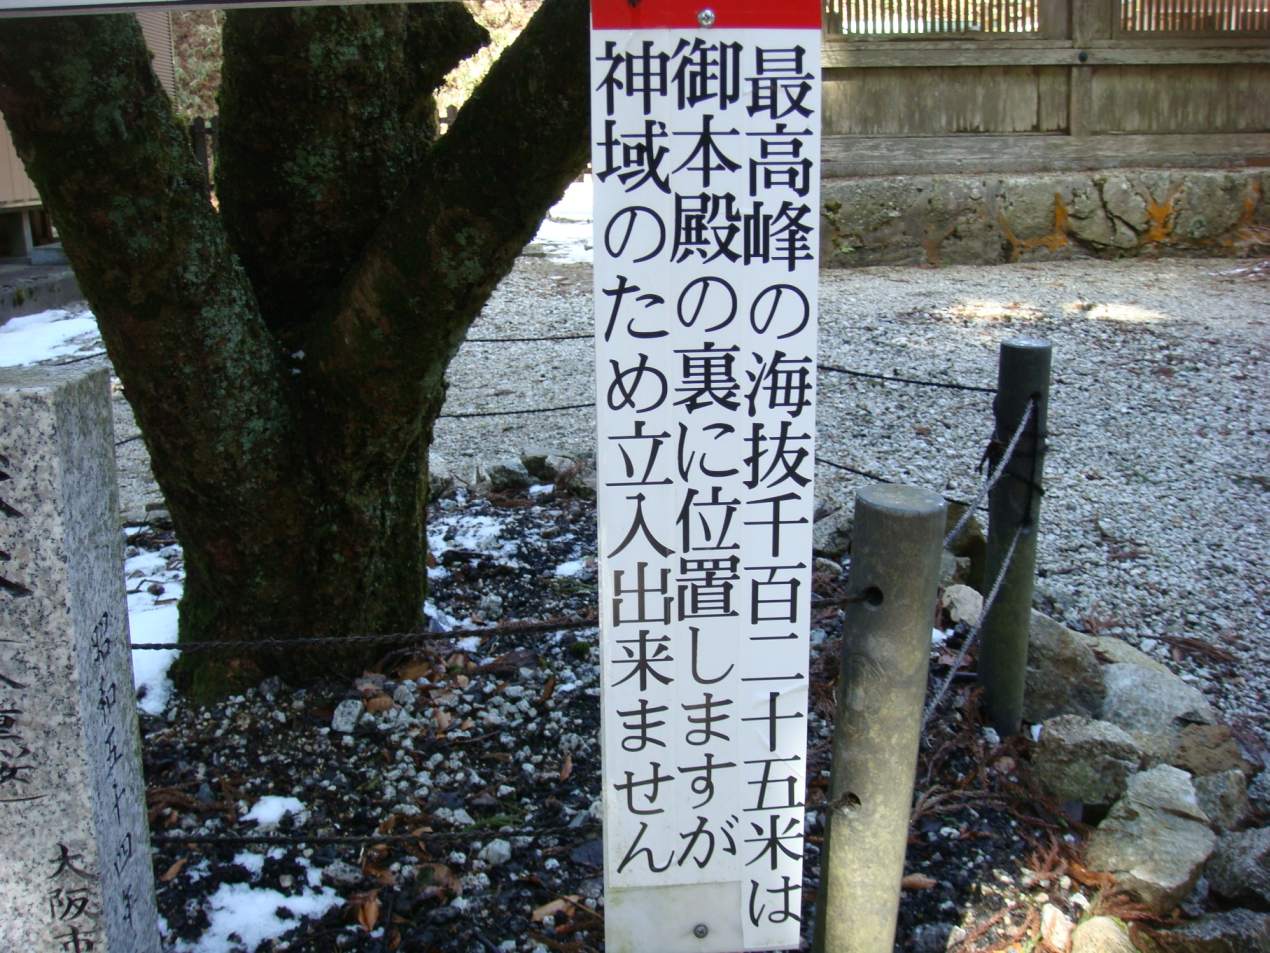 最高峰の海抜千百二十五米は
御本殿の裏に位置しますが
神域のため立入出来ません
昭和五十四年
大阪市